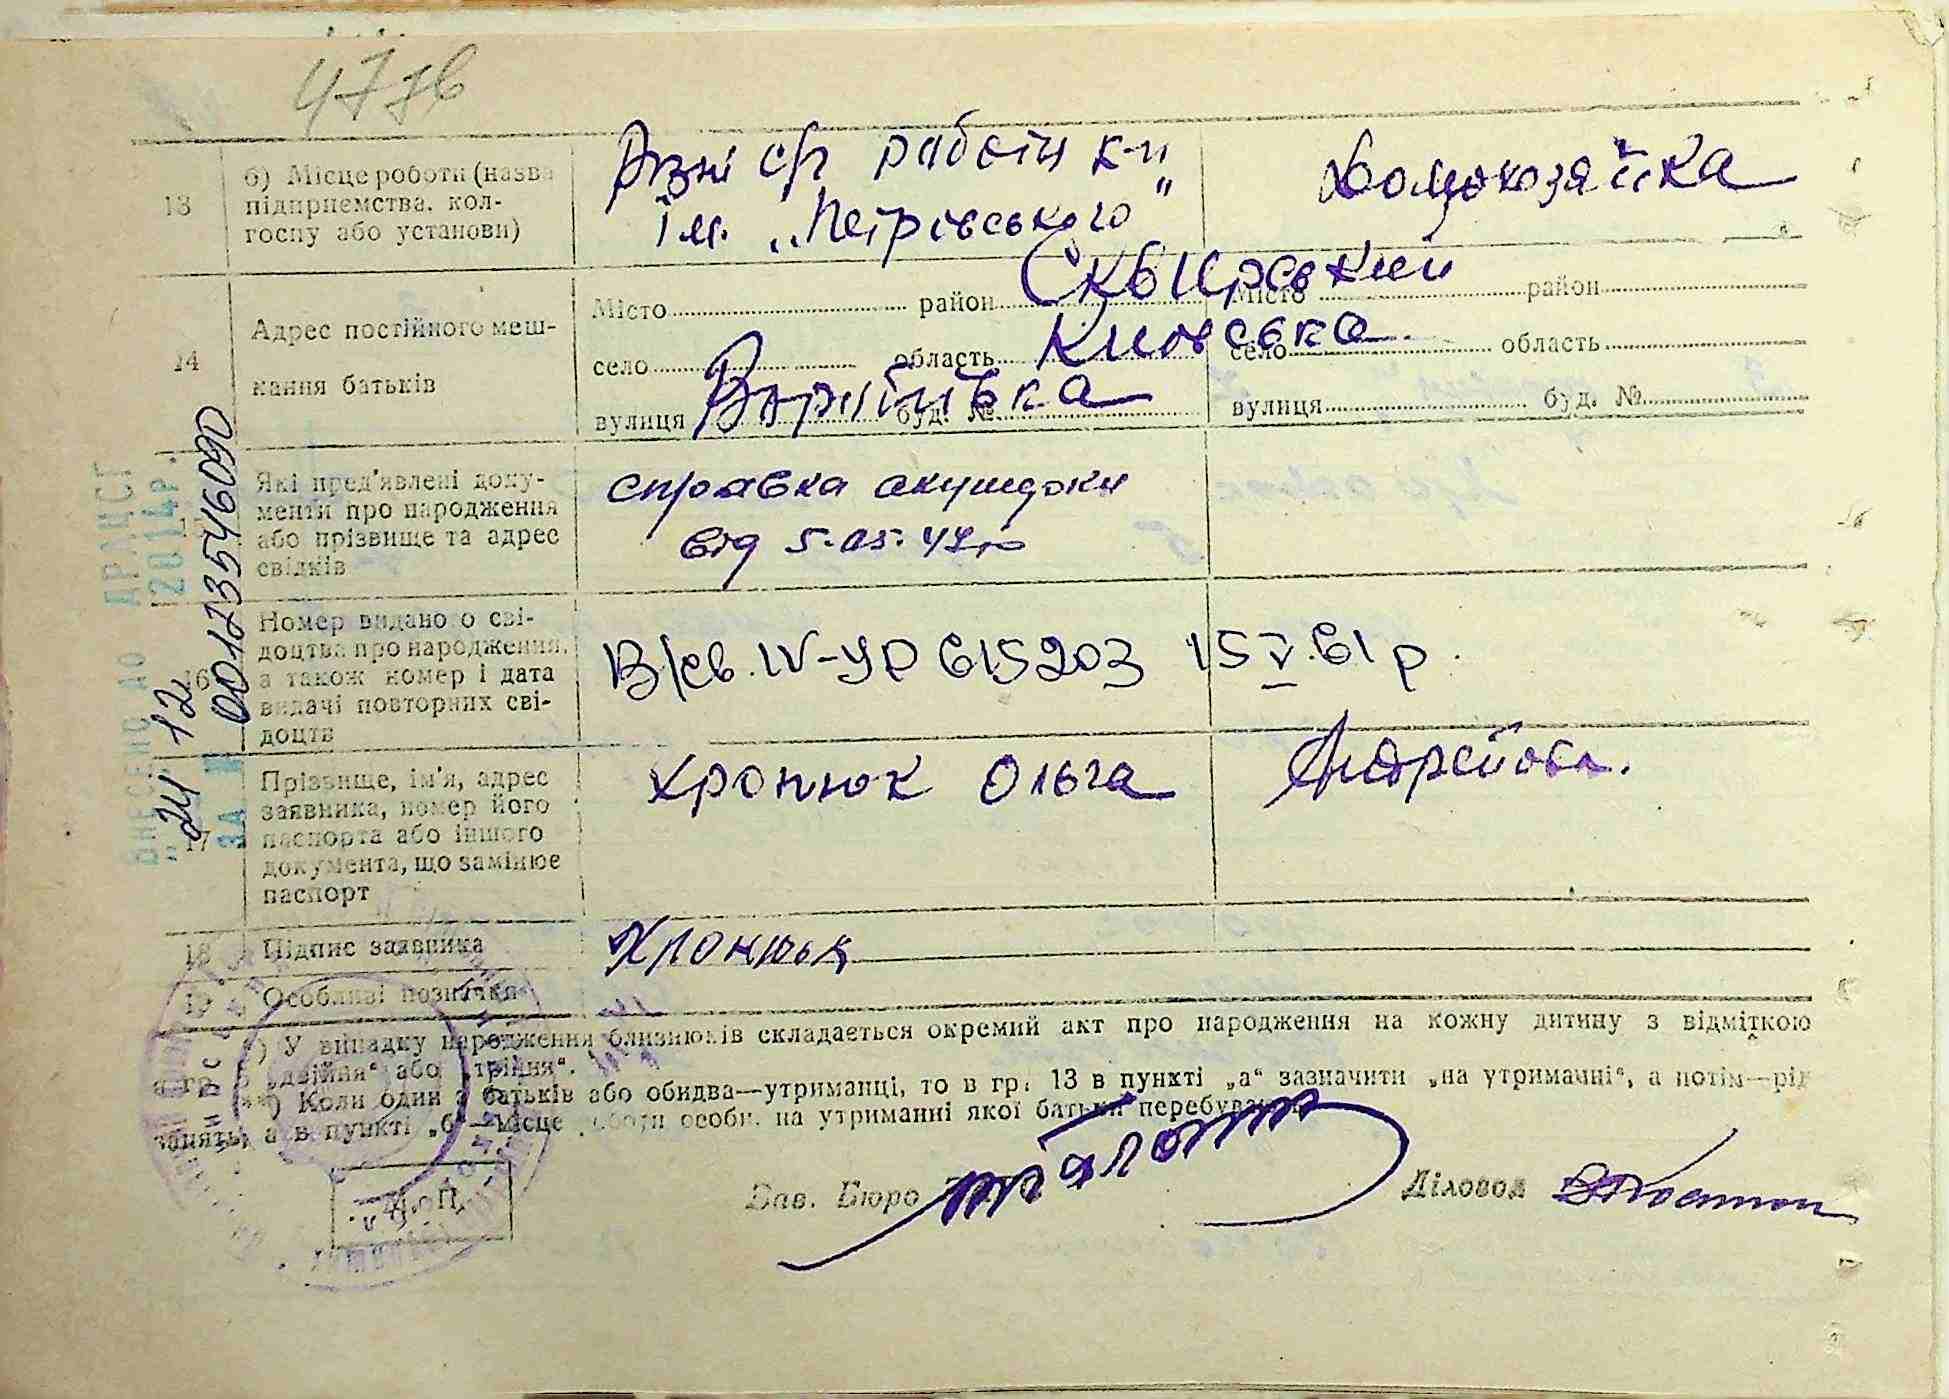 477б
13
б) Місце роботи (назва
підприємства, кол-
госпу або установи)
Різні с/г работи к-п
Ім. „Петрівського"
Домохозяйка
14
Адрес постійного меш-
кання батьків
Місто район Сквирський
село область Киівська
вулиця буд. №
Місто район
село область
вулиця буд. №
Які пред'явлені доку-
менти про народження
або прізвище та адрес
свідків
справка акушерки
від 5.05.47р
16
Номер виданого сві-
доцтва про народження,
а також номер і дата
видачі повторних сві-
доцтв
В/св. IV-УР 615203 15 V. 61 р.
17
Прізвище, ім'я, адрес
заявника, номер його
паспорта або іншого
документа, що замінює
паспорт
Хропнюк Ольга
18
Підпис заявника
19
Особливі позначки
*) У випадку народження близнюків складається окремий акт про народження на кожну дитину з відміткою
в гр. „двійня“ або „трійня“.
**) Коли один з батьків або обидва—утриманці, то в гр. 13 в пункті „а“ зазначити „на утриманні“, а потім—рід
занять, а в пункті „б“—місце роботи особи, на утриманні якої батьки перебувають
Зав. Бюро
Діловод
М. П.
ВНЕСЕНО ДО ДРАЦСГ
„24 12 2014р.
ЗА № 001273546090